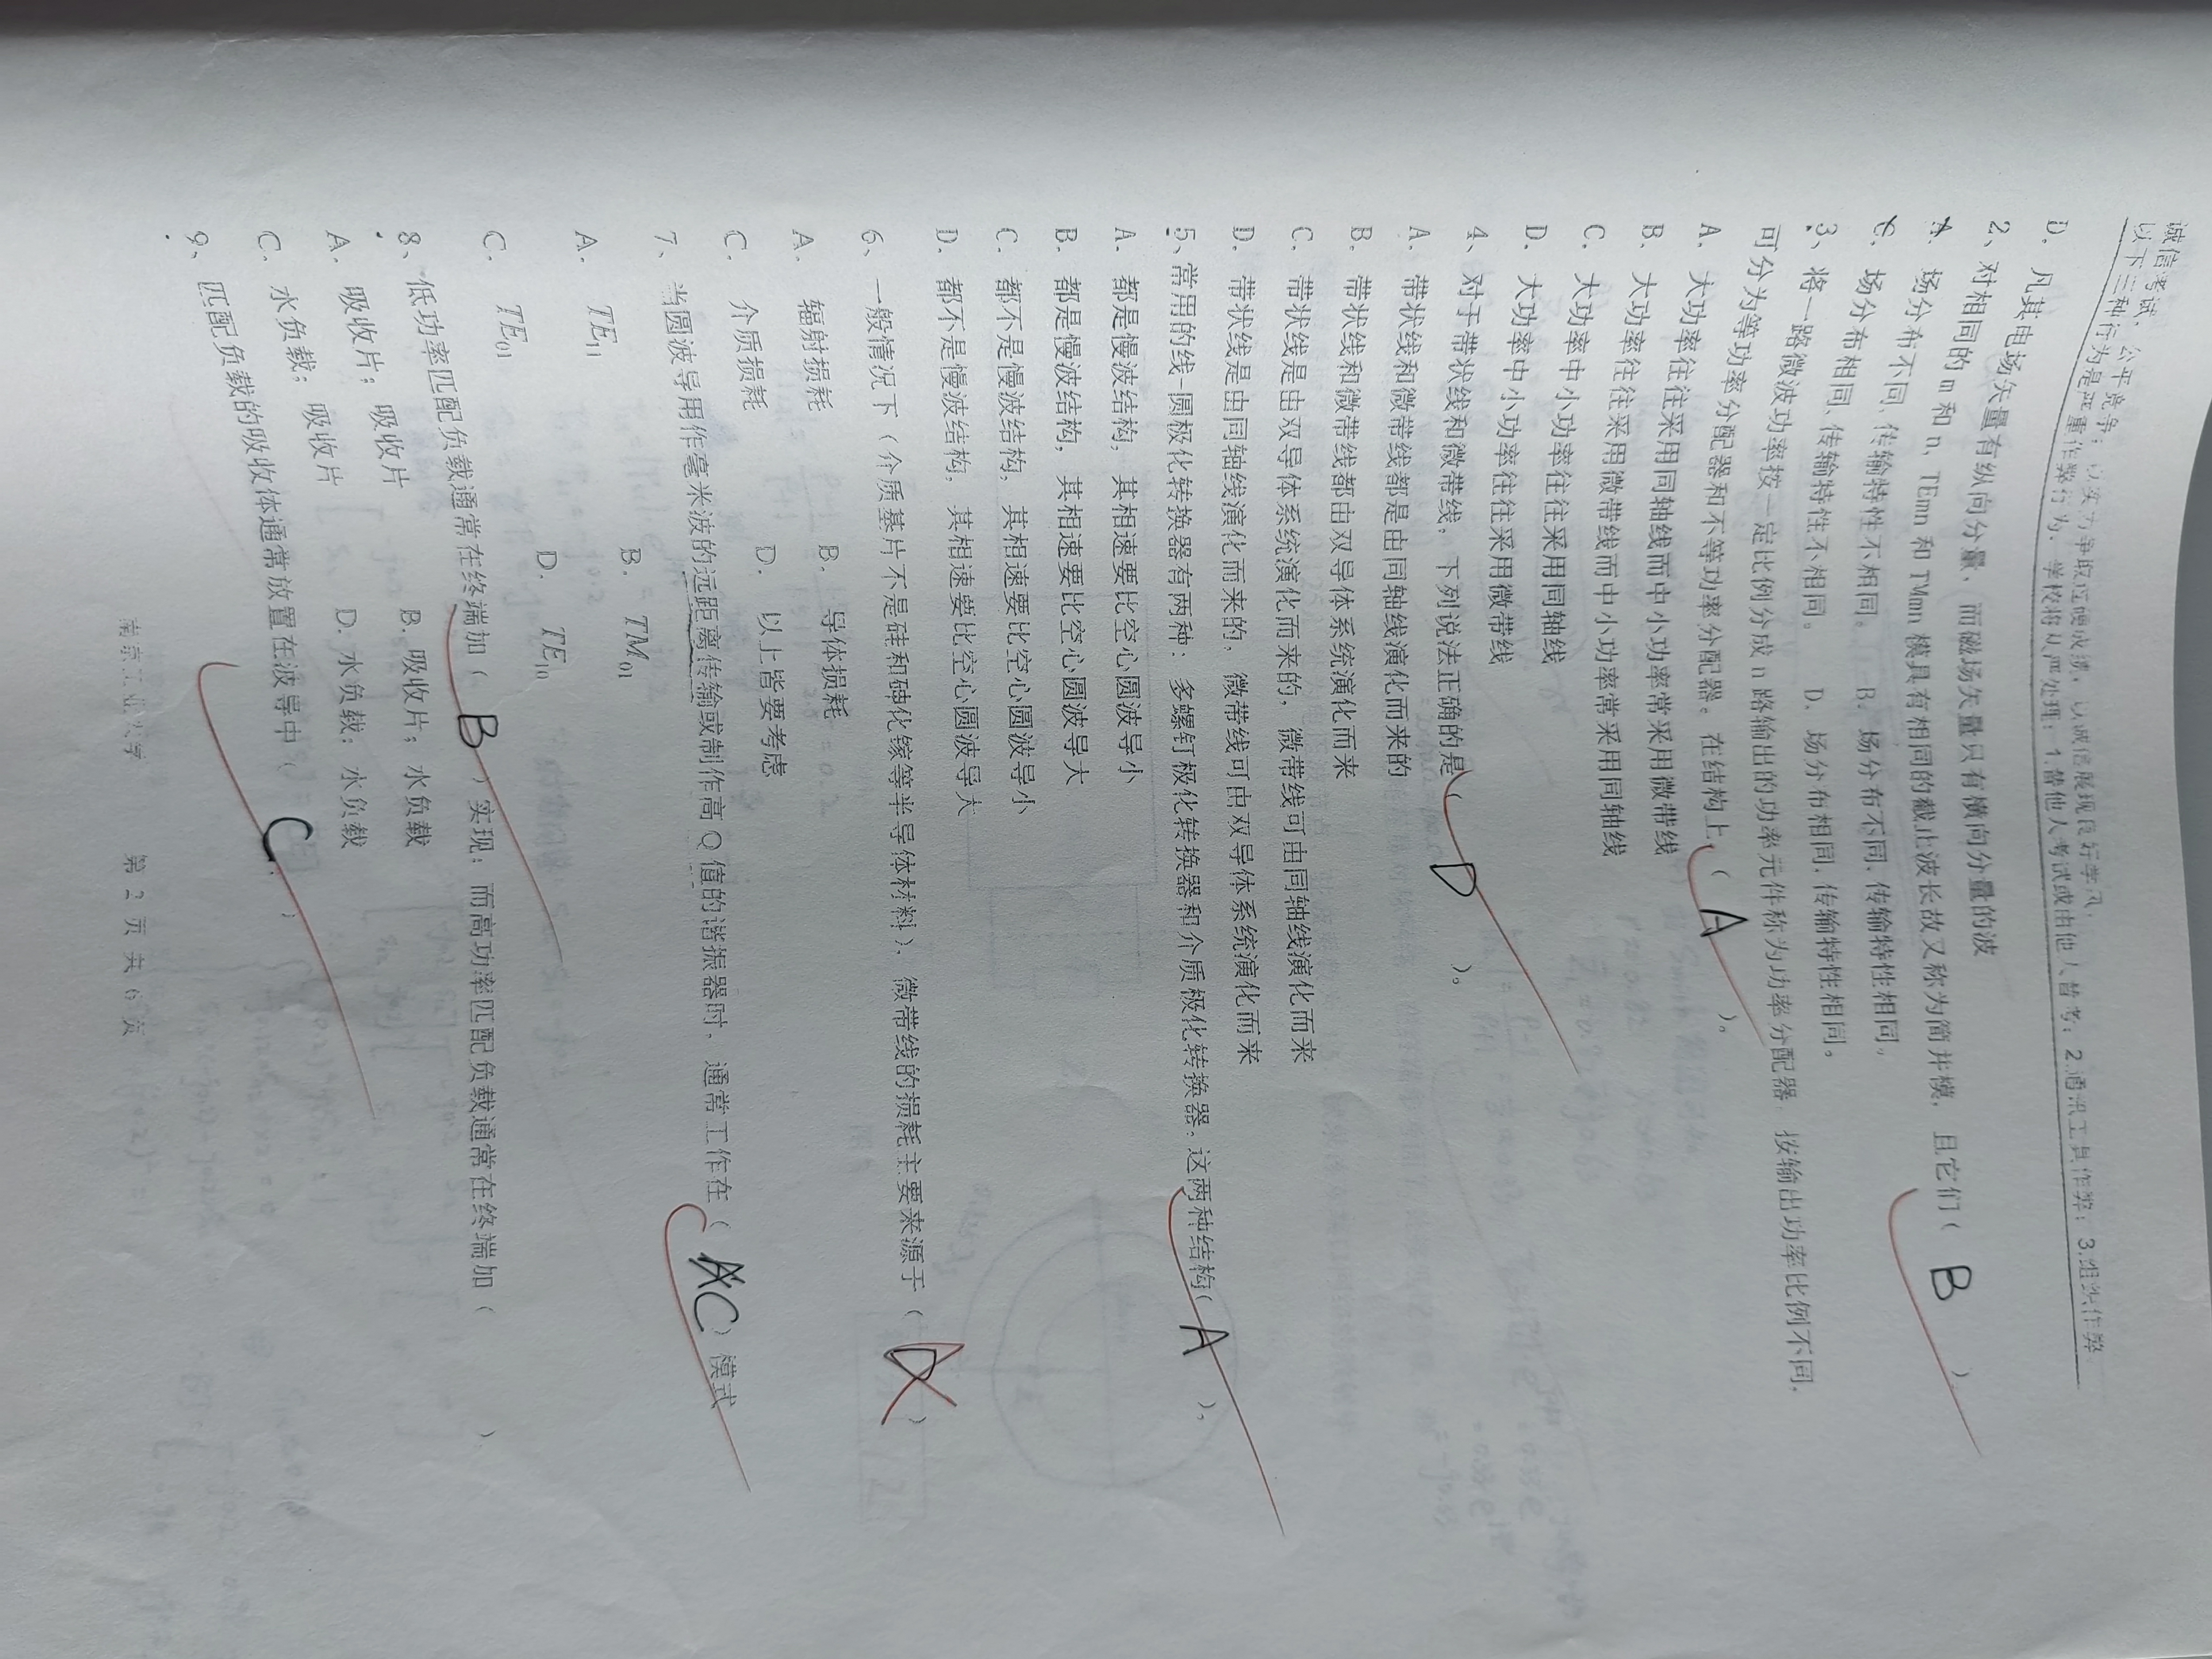 诚信考试，公平竞争；以实力争取过硬成绩，以诚信展现良好学风。
以下三种行为是严重作弊行为，学校将从严处理：1.替他人考试或由他人替考；2.通讯工具作弊；3.组织作弊
D. 凡其电场矢量有纵向分量，而磁场矢量只有横向分量的波
2、对相同的 m 和 n, TEmn 和 TMmn 模具有相同的截止波长故又称为简并模，且它们( B ).
A. 场分布不同,传输特性不相同。 B. 场分布不同,传输特性相同。
C. 场分布相同,传输特性不相同。 D. 场分布相同,传输特性相同。
3、将一路微波功率按一定比例分成 n 路输出的功率元件称为功率分配器，按输出功率比例不同,
可分为等功率分配器和不等功率分配器。在结构上,（ A ）。
A. 大功率往往采用同轴线而中小功率常采用微带线
B. 大功率往往采用微带线而中小功率常采用同轴线
C. 大功率中小功率往往采用同轴线
D. 大功率中小功率往往采用微带线
4、对于带状线和微带线，下列说法正确的是（ D ）。
A. 带状线和微带线都是由同轴线演化而来的
B. 带状线和微带线都由双导体系统演化而来
C. 带状线是由双导体系统演化而来的，微带线可由同轴线演化而来
D. 带状线是由同轴线演化而来的，微带线可由双导体系统演化而来
5、常用的线-圆极化转换器有两种：多螺钉极化转换器和介质极化转换器。这两种结构( A )。
A. 都是慢波结构，其相速要比空心圆波导小
B. 都是慢波结构，其相速要比空心圆波导大
C. 都不是慢波结构，其相速要比空心圆波导小
D. 都不是慢波结构，其相速要比空心圆波导大
6、一般情况下（介质基片不是硅和砷化镓等半导体材料），微带线的损耗主要来源于（ D ）
A. 辐射损耗 B. 导体损耗
C. 介质损耗 D. 以上皆要考虑
7、当圆波导用作毫米波的远距离传输或制作高 Q 值的谐振器时，通常工作在（ C ）模式
A. TE11 B. TM01
C. TE01 D. TE10
8、低功率匹配负载通常在终端加（ B ）实现；而高功率匹配负载通常在终端加（ ）
A. 吸收片；吸收片 B. 吸收片；水负载
C. 水负载；吸收片 D. 水负载；水负载
9、匹配负载的吸收体通常放置在波导中（ C. ）
南京工业大学 第 2 页 共 6 页